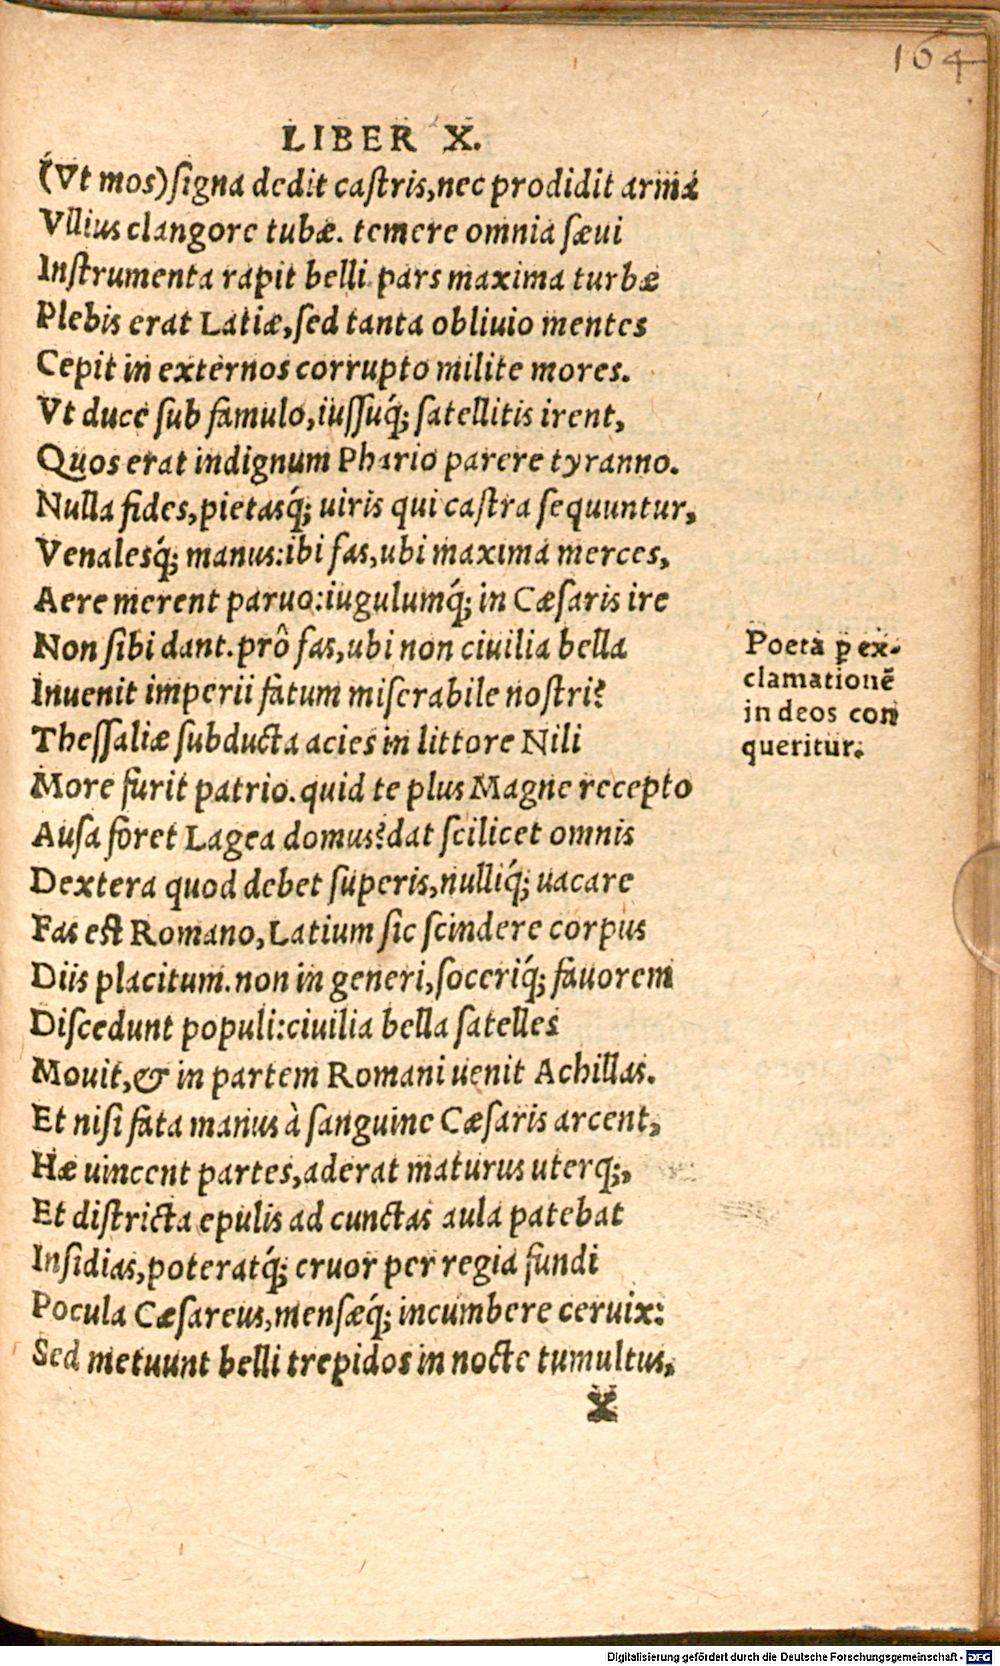 164
LIBER X.
(Vt mos) signa dedit castris, nec prodidit arma
Vllius clangore tubæ. temere omnia sæui
Instrumenta rapit belli. pars maxima turbæ
Plebis erat Latiæ, sed tanta obliuio mentes
Cepit in externos corrupto milite mores.
Vt duce sub famulo, iussuq́; satellitis irent,
Quos erat indignum Phario parere tyranno.
Nulla fides, pietasq́; uiris qui castra sequuntur,
Venalesq́; manus: ibi fas, ubi maxima merces,
Aere merent paruo: iugulumq́; in Cæsaris ire
Non sibi dant. prô fas, ubi non ciuilia bella
Inuenit imperii fatum miserabile nostri?
Thessaliæ subducta acies in littore Nili
More furit patrio. quid te plus Magne recepto
Ausa foret Lagea domus? dat scilicet omnis
Dextera quod debet superis, nulliq́; uacare
Fas est Romano, Latium sic scindere corpus
Diis placitum. non in generi, soceriq́; fauorem
Discedunt populi: ciuilia bella satelles
Mouit, & in partem Romani uenit Achillas.
Et nisi fata manus à sanguine Cæsaris arcent,
Hæ uincent partes, aderat maturus uterq;,
Et districta epulis ad cunctas aula patebat
Insidias, poteratq́; cruor per regia fundi
Pocula Cæsareus, mensæq́; incumbere ceruix:
Sed metuunt belli trepidos in nocte tumultus,
X
Poeta ꝑ ex-
clamationē
in deos con
queritur.
Digitalisierung gefördert durch die Deutsche Forschungsgemeinschaft - DFG